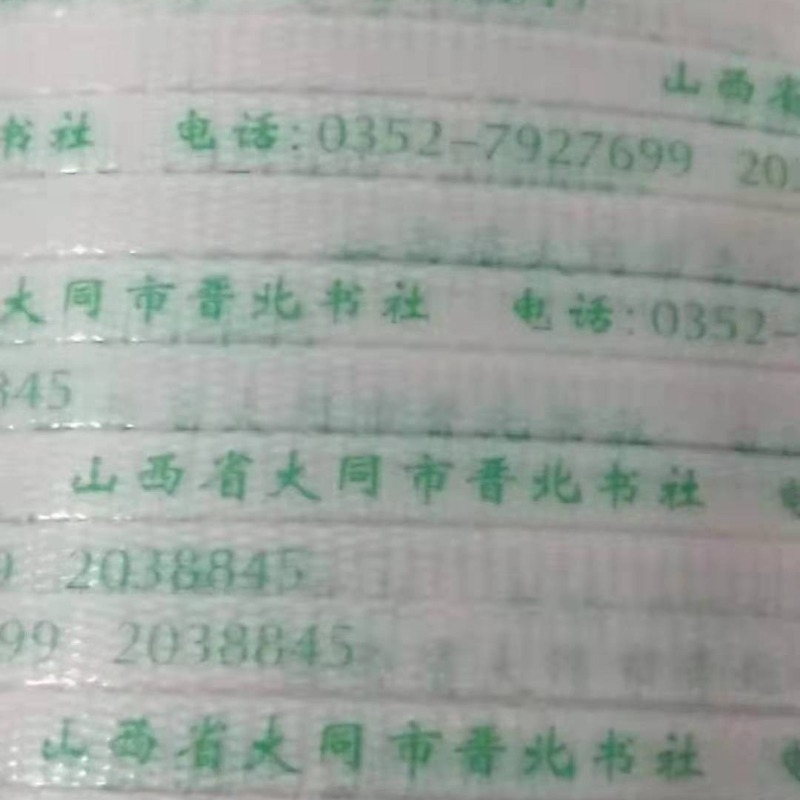 山西省
书社 电话:0352-7927699 20
大同市晋北书社 电话:0352-
845
山西省大同市晋北书社
9 2038845
99 2038845
山西省大同市晋北书社